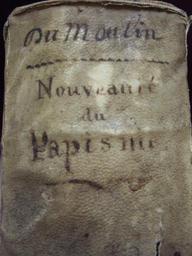 Du Moulin
Nouveauté
du
Papisme